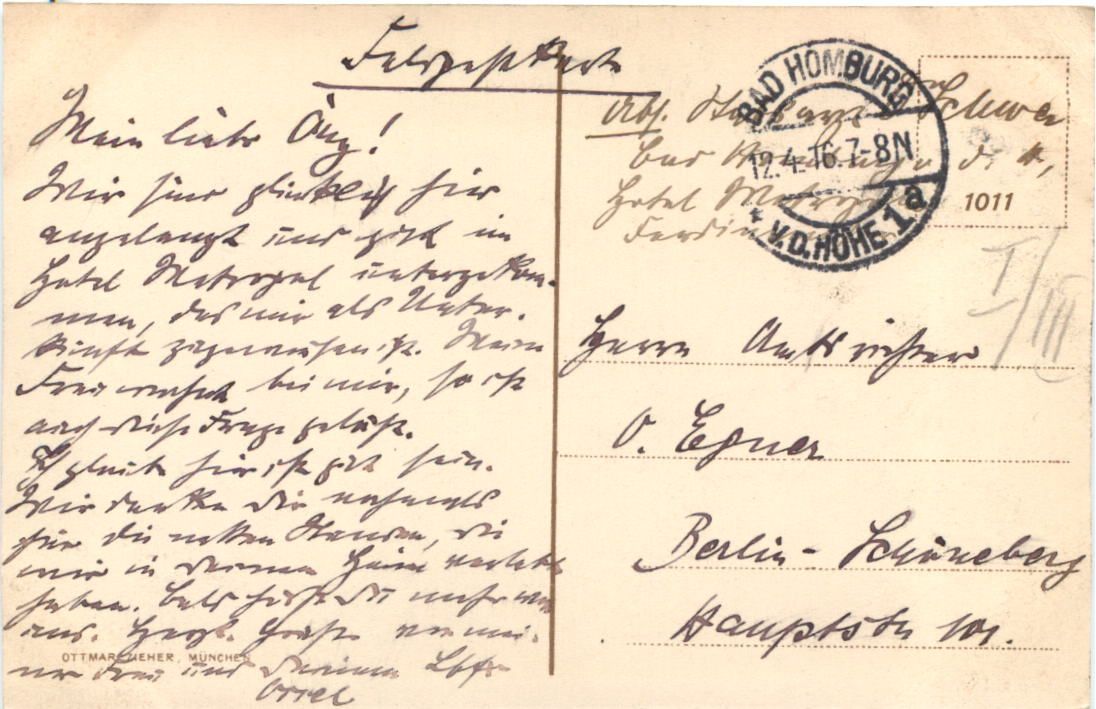 Feldpostkarte
Mein lieber
Wir sind glücklich hier
angelangt und gut im
Hotel Metropol untergekom-
men, das mir als Unter-
kunft zugewiesen ist. Meine
Frau wohnt bei mir, so ist
auch diese Frage gelöst.
Ich glaube hier ist gut sein.
Wir danken Dir nochmals
für die netten Stunden, die
wir in Deinem Heim verlebt
haben. Bald hörst Du mehr von
uns. Herzl. Grüße von mei-
ner Frau und Deinem
OTTMAR ZIEHER, MÜNCHEN
Abs. Stabsarzt
Hotel Metropol
BAD HOMBURG
12.4.16.7-8N
* V.D. HÖHE 1a
1011
I/III
Herrn Amtsrichter
O. Egner
Berlin-Schöneberg
Hauptstr 101.